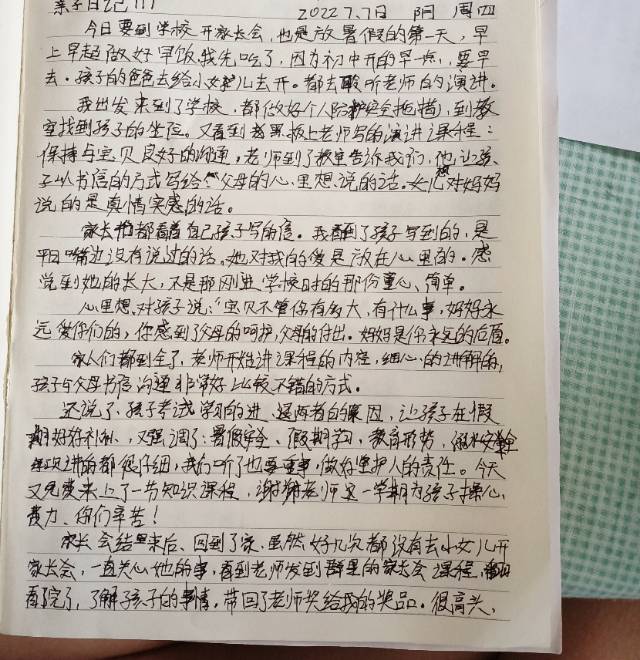 亲子日记111 2022.7.7日 阴 周四
今日要到学校开家长会,也是放暑假的第一天,早
上早起做好早饭我先吃了,因为初中开的早一点,要早
去.孩子的爸爸去给小女儿去开。都去聆听老师的演讲。
我出发来到了学校,都做好个人防护安全措施,到教
室找到孩子的坐位。又看到黑板上老师写的演讲课程:
保持与宝贝良好的沟通,老师到了教室告诉我们,他让孩
子以书信的方式写给父母的心里想说的话.女儿对妈妈
说的是真情实感的话。
家长们都看着自己孩子写的信。我看到了孩子写到的,是
平日嘴边没有说过的话。她对我的爱是放在心里面的.感
觉到她的长大,不是那刚进学校时的那份童心、简单。
心里想对孩子说:"宝贝不管你有多大,有什么事,妈妈永
远爱你们的,你感到父母的呵护,父母的付出。妈妈是你永远的后盾。
家人们都到全了,老师开始讲课程的内容,细心的讲解的,
孩子与父母书信沟通非常好比较不错的方式。
还说了、孩子考试学习的进退两者的原因,让孩子在假
期好好补补,又强调了:暑假安全、假期学习,教育形势,
讲的都很仔细,我们听了也要重事,做好监护人的责任。今天
又免费来上了一节知识课程,谢谢老师这一学期为孩子操心、
费力、你们辛苦!
家长会结束后、回到了家.虽然好几次都没有去小女儿开
家长会,一直关心她的事,看到老师发到群里的家长会课程,
看完了,了解孩子的事情。带回了老师奖给我的奖品.很高兴、